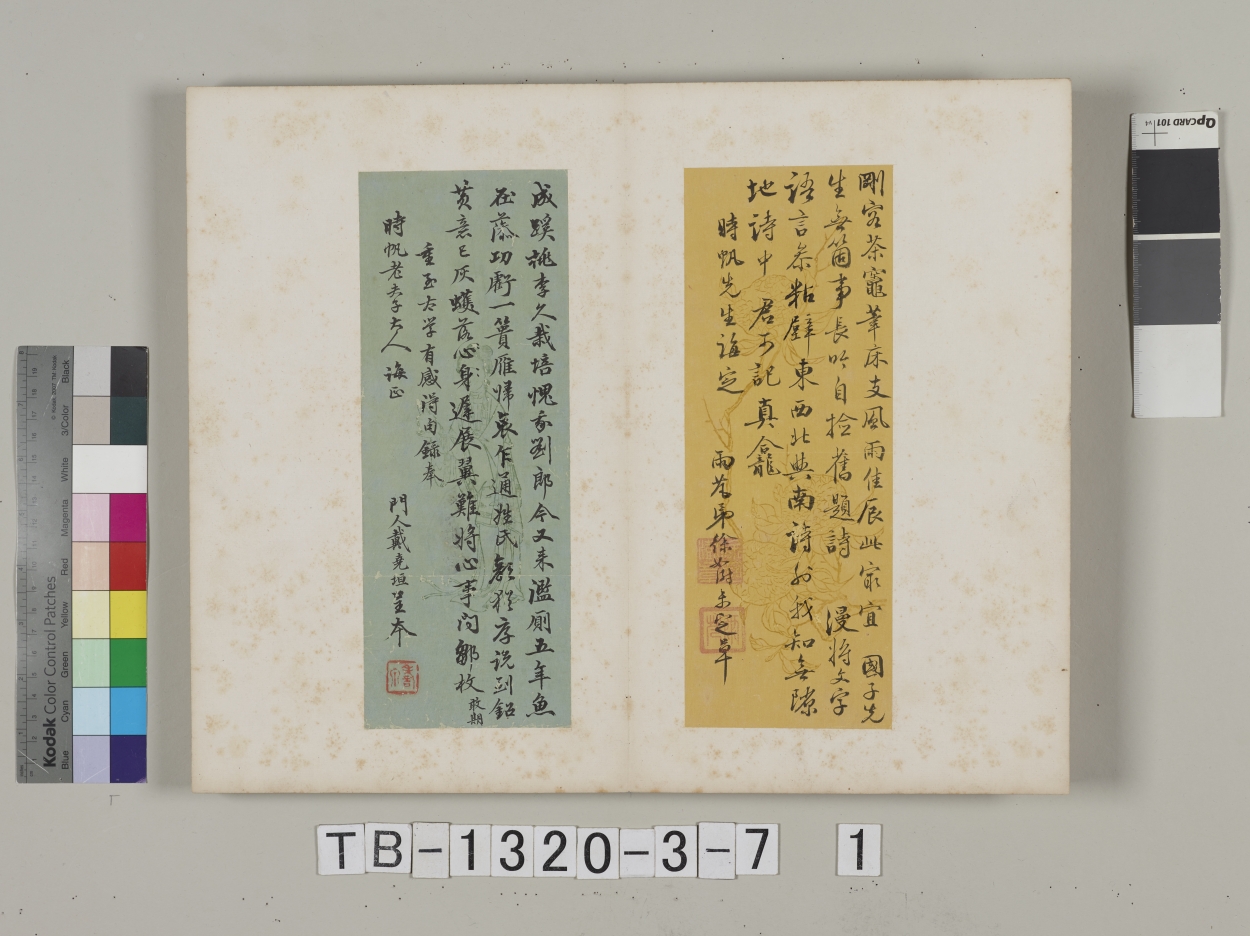 剛容茶竈葦床支風雨佳辰此宜國子先
生無箇事長吟自撿舊題詩漫將文字
語言參粘壁東西北與南詩外我知無隙
地詩中君可記真龕
時帆先生誨定
雨弟徐未定草
成蹊桃李久栽培愧我劉郎今又來濫廁五年魚
在藻功虧一簣雁歸乍通姓氏顏猶存說到鉛
黃意已灰蠖落心身遲展翼難將心事問鄒枚
敢期
重至太學有感得由錄奉
時帆老夫子大人誨正
門人戴堯垣呈本
Kodak Color Control Patches
Blue Cyan Green Yellow Red Magenta White 3/Color Black
QPCARD 101 v4
TB-1320-3-7 1